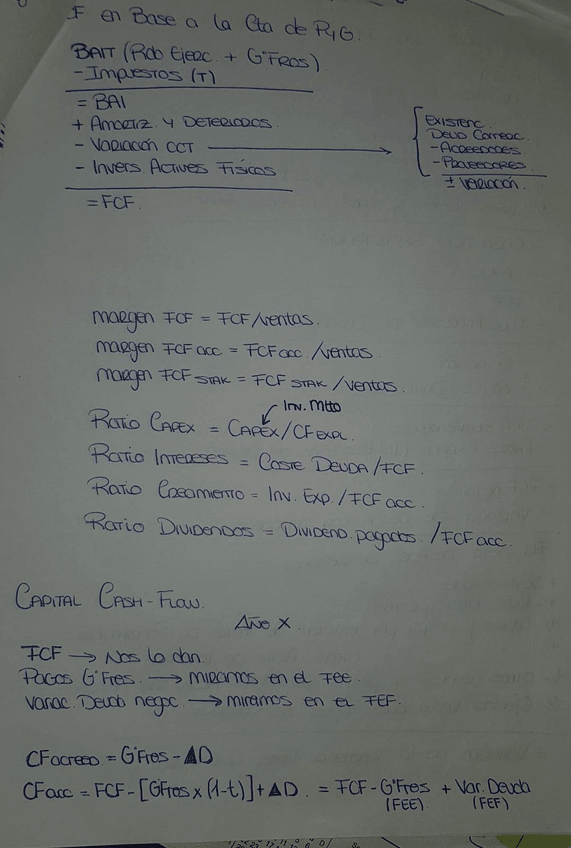 F en Base a la Cta de PyG.
BAIT (Rdo Ejerc. + GºFROS)
- Impuestos (T)
= BAI
+ Amortiz. y Deterioros
- Variación CCT →
- Invers Activos Físicos
= FCF.
Existenc.
Deud Comerc.
- Acreedores
- Proveedores
± Variación.
margen FCF = FCF/ventas.
margen FCF acc = FCF acc. /ventas
margen FCF STAK = FCF STAK /ventas.
Inv. Mtto
Ratio Capex = CAPEX/CF EXPL.
Ratio Intereses = Coste Deuda /FCF.
Ratio Crecimiento = Inv. Exp. /FCF acc.
Ratio Dividendos = Dividend. pagados. /FCF acc.
Capital Cash-Flow.
Año X
FCF → Nos lo dan.
Pagos GºFres. → miramos en el FEE.
Variac. Deuda negoc. → miramos en el FEF.
CFacreed = GºFres - ΔD
CFacc = FCF - [GFros x (1-t)] + ΔD. = FCF - GºFres + Var. Deuda
(FEE) (FEF)